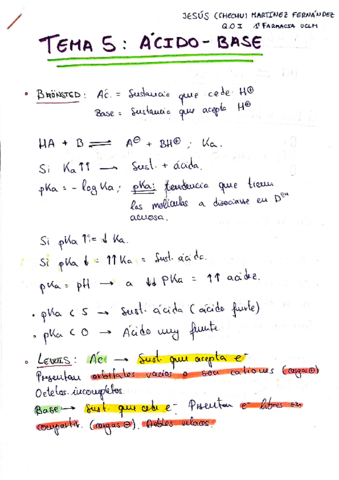 JESÚS (CHECHU) MARTÍNEZ FERNÁNDEZ
Q.O.I 1º FARMACIA UCLM
TEMA 5: ÁCIDO-BASE
• BRÖNSTED: Ác. = Sustancia que cede H⊕
Base = Sustancia que acepta H⊕
HA + B ⇌ A⊖ + BH⊕ ; Ka.
Si Ka↑↑ → Sust. + ácida.
pKa = - log Ka; pKa: tendencia que tienen
las moléculas a disociarse en Dᵒⁿ
acuosa.
Si pKa ↑ = ↓ Ka.
Si pKa ↓ = ↑↑ Ka = Sust. ácida.
pKa = pH → a ↓↓ PKa = ↑↑ acidez.
• pKa < 5 → Sust. ácida (ácido fuerte)
• pKa < 0 → Ácido muy fuerte.
• LEWIS: Ác → Sust. que acepta e⁻
Presentan orbitales vacíos o son cationes (carga ⊕)
Octetos incompletos.
Base → Sust. que cede e⁻. Presentan e⁻ libres sin
compartir. (cargas ⊖).